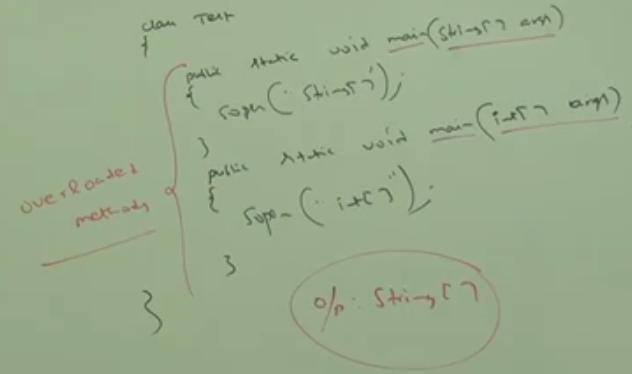 class Test
{
public static void main(String[] args)
{
sopln("String[]");
}
public static void main(int[] args)
{
sopln("int[]");
}
}
overloaded
methods
o/p: String[]